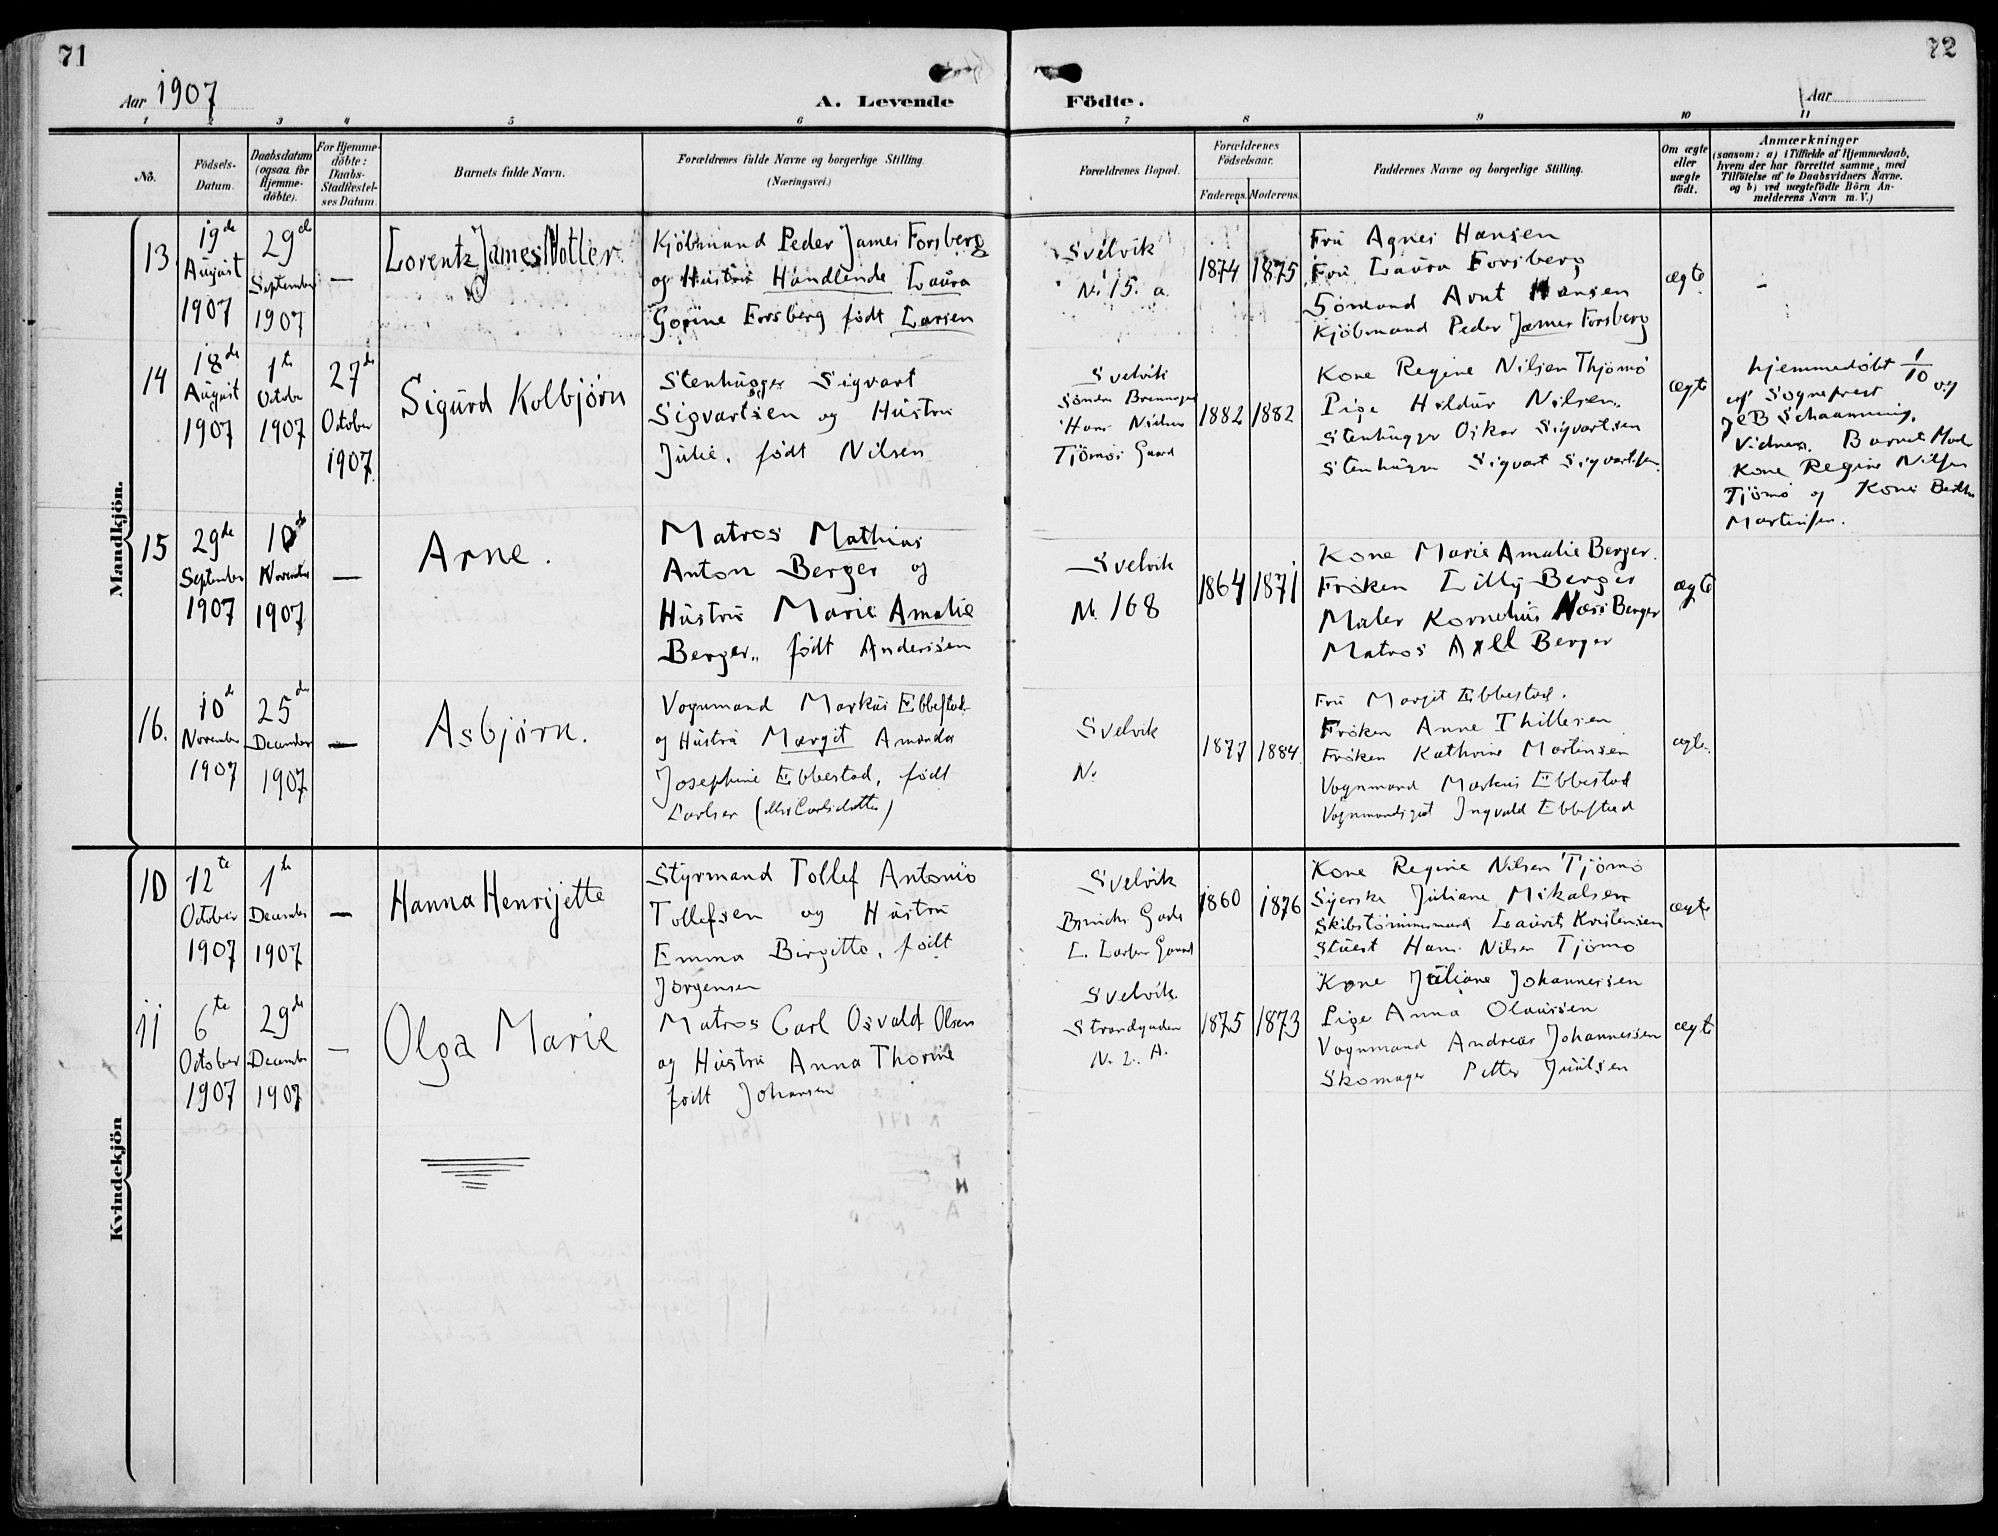 71
72
Aar 1907
A. Levende Födte.
Aar
1 2 3 4 5 6 7 8 9 10 11
No.
Födsels-
Datum.
Daabsdatum
(ogsaa for
Hjemme-
döbte).
For Hjemme-
döbte:
Daabs-
Stadfæstel-
ses Datum.
Barnets fulde Navn.
Forældrenes fulde Navne og borgerlige Stilling.
(Næringsvei.)
Forældrenes Bopæl.
Forældrenes
Födselsaar.
Faderens. Moderens.
Faddernes Navne og borgerlige Stilling.
Om ægte
eller
uægte
födt.
Anmærkninger
(saasom: a) i Tilfælde af Hjemmedaab,
hvem der har forrettet samme, med
Tilföielse af to Daabsvidners Navne.
og b) ved uægtefödte Börn An-
melderens Navn m. V.)
Mandkjön.
13.
19de
August
1907
29de
September
1907
—
Lorentz James Notler
Kjöbmand Peder James Forsberg
og Hustru Handlende Laura
Gorine Forsberg født Larsen
Svelvik
N. 15. a.
1874
1875
Fru Agnes Hansen
Fru Laura Forsberg
Sömand Arnt Hansen
Kjöbmand Peder James Forsberg
ægte
–
14
18de
August
1907
1te
October
1907
27de
October
1907.
Sigurd Kolbjørn
Stenhugger Sigvart
Sigvartsen og Hustru
Julie, født Nilsen
Svelvik
Søndre
Hans Nilsen
Tjömös Gaard
1882
1882
Kone Regine Nilsen Thjömö
Pige Hildur Nilsen.
Stenhugger Oskar Sigvartsen
Stenhugger Sigvart Sigvartsen.
ægte
hjemmedøbt 1/10 07
af Sogneprest
Schaanning.
Vidner. Barnets
Kone Regine Nilsen
Tjömö og Kone
Martinsen.
15
29de
September
1907
10de
November
1907
—
Arne.
Matros Mathias
Anton Berger og
Hustru Marie Amalie
Berger, født Andersen
Svelvik
N. 168
1864
1871
Kone Marie Amalie Berger.
Frøken Lilly Berger
Maler Kornelius Næss Berger
Matros Axel Berger
ægte
16.
10de
November
1907
25de
December
1907
—
Asbjørn.
Vognmand Markus Ebbestad
og Hustru Margit Amanda
Josephine Ebbestad, født
Carlsen (eller Carlsdatter)
Svelvik
N.
1877
1884
Fru Margit Ebbestad.
Frøken Anne Thillesen
Frøken Kathrine Martinsen
Vognmand Markus Ebbestad
Vognmandsgut Ingvald Ebbestad
ægte.
Kvindekjön
10
12te
October
1907
1te
December
1907
—
Hanna Henrijette
Styrmand Tollef Antonio
Tollefsen og Hustru
Emma Birgitte, født
Jørgensen
Svelvik
L. Larsens Gaard
1860
1876
Kone Regine Nilsen Tjömö
Syerske Juliane Mikalsen
Skibstømmermand Laurits Kristensen
Stuert Hans Nilsen Tjömö
ægte
11
6te
October
1907
29de
December
1907
—
Olga Marie
Matros Carl Osvald Olsen
og Hustru Anna Thorine
født Johansen
Svelvik.
Strandgaden
N. 2. A.
1875
1873
Kone Juliane Johannessen
Pige Anna Olaussen
Vognmand Andreas Johannessen
Skomager Petter Juulsen
ægte